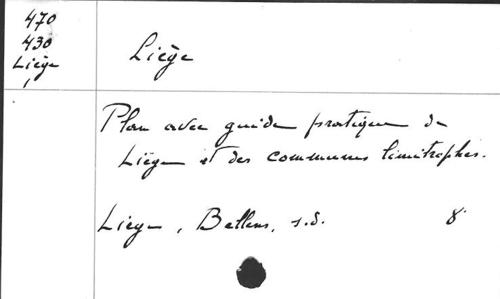 470
430
Liège
1
Liège
Plan avec guide pratique de
Liège et des communes limitrophes.
Liège, Bellens, s.d. 8°